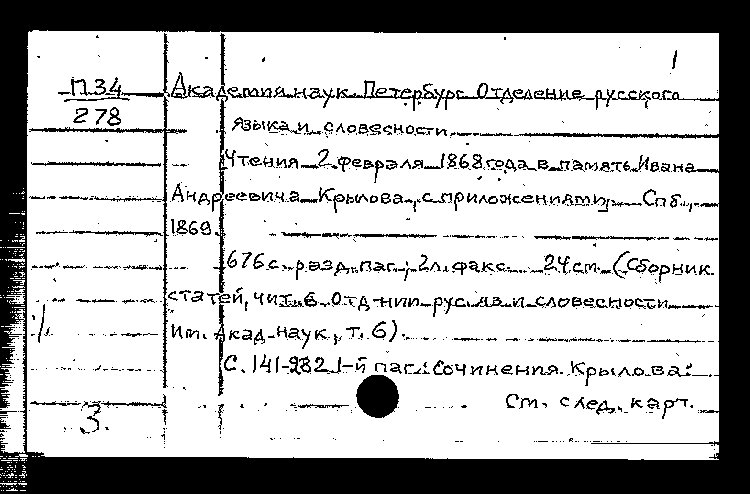 1
П34
278
Академия наук. Петербург. Отделение русского
языка и словесности.
Чтения 2 февраля 1868 года в память Ивана
Андреевича Крылова, с приложениями. Спб.,
1869.
676 с. разд. паг.; 2 л. факс. 24 см. (Сборник
статей, чит. в Отд-нии рус. яз. и словесности
Им. Акад. наук, т. 6).
С. 141-282 1-й паг.: Сочинения Крылова:
См. след. карт.
3.